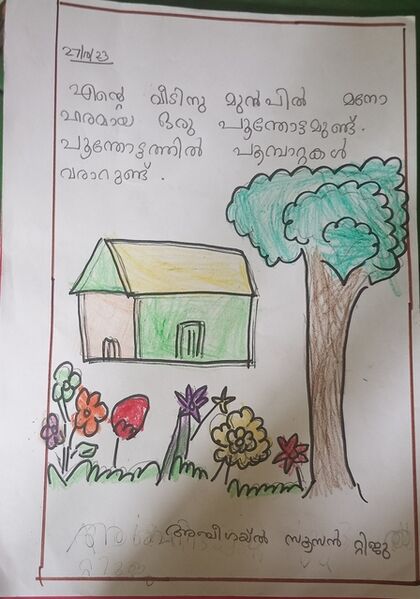 എന്റെ വീടിനു മുൻപിൽ മനോ
ഹരമായ ഒരു പൂന്തോട്ടമുണ്ട്.
പൂന്തോട്ടത്തിൽ പൂമ്പാറ്റകൾ
വരാറുണ്ട്.
അബീഗയ്ൽ സൂസൻ റ്റിജു